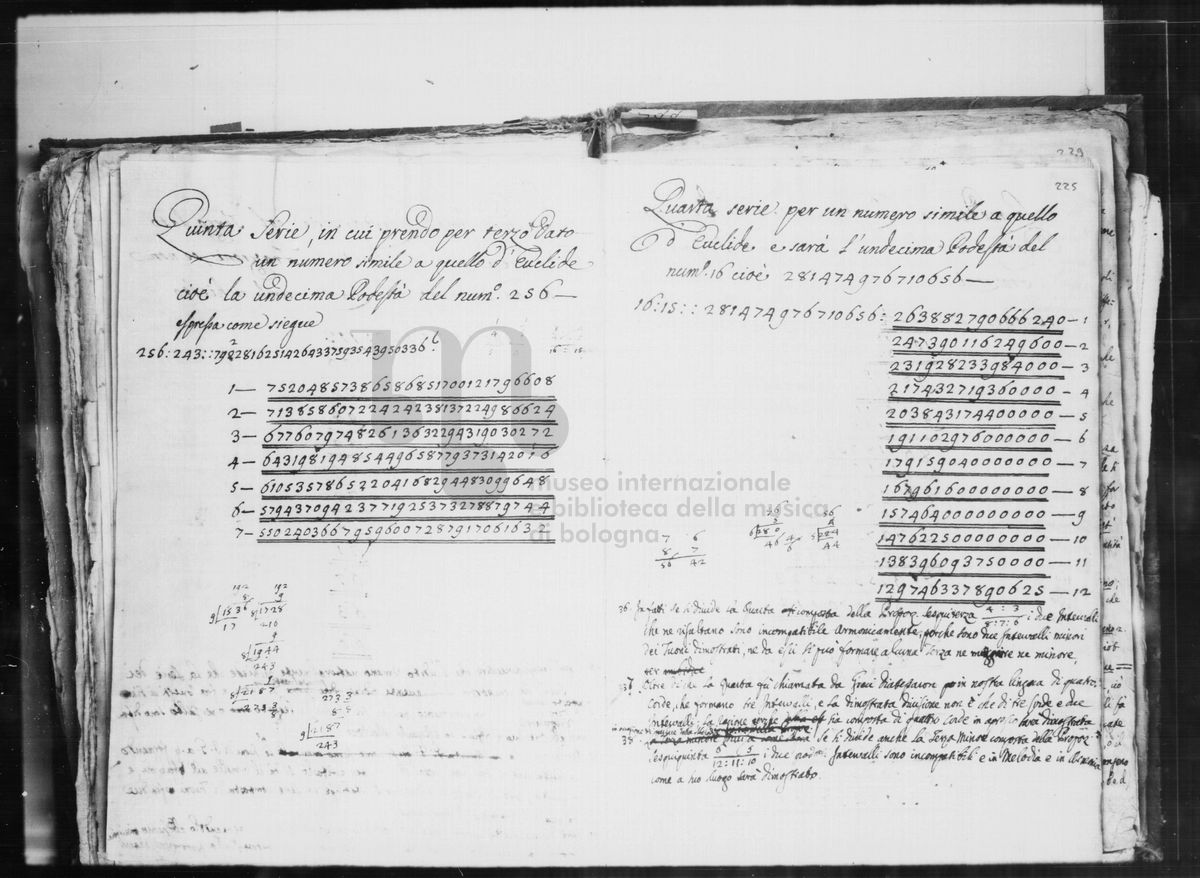 Quinta Serie, in cui prendo per terzo dato
un numero simile a quello d'Euclide
cioè la undecima Podestà del num.º 256—
espressa come siegue
256:243::79228162514264337593543950336
1— 75204857386586851700121796608
2— 71385860722424238137224986624
3— 67760797482613632294319030272
4— 64319819485449658779373142016
5— 61053578652204168294483099648
6— 57943709423771925373278879744
7— 55024036679596007287917061632
192 192
8 9
9 1836 8 1728
17 216
9
8 1944
243
8 2187 2733
2733 8:8
8
9 2187
243
229
225
Quarta serie per un numero simile a quello
d'Euclide e sarà l'undecima Podestà del
num.º 16 cioè 281474976710656—
16:15::281474976710656:263882790666240—1
247390116249600—2
231928233984000—3
217432719360000—4
203843174400000—5
191102976000000—6
179159040000000—7
167961600000000—8
157464000000000—9
147622500000000—10
138396093750000—11
129746337890625—12
56 56
7 6
8 7
56 42
36 Infatti se si divide la Quarta composta della Propoz. sesquiterza 4:3 8:7:6 i due Intervalli
che ne risultano sono incompatibile Armonicamente, perche sono due Intervalli minori
dei Tuoni dimostrati, ne da essi si può formare alcuna Terza ne maggiore ne minore,
37 Oltre di che la Quarta fù chiamata da Greci Diatessaron poi in nostra lingua di quattro
Corde, che formano tre Intervalli, e la dimostrata divisione non è che di tre Corde e due
Intervalli la ragione sia composta di quattro Corde in apresso sarà dimostrata
38 se si divide anche la Terza Minore composta della Propoz.
sesquiquinta 6:5 12:11:10 i due Intervalli sono incompatibili e in Melodia e in Armonia
come a suo luogo sarà dimostrato.
museo internazionale
e biblioteca della musica
di bologna